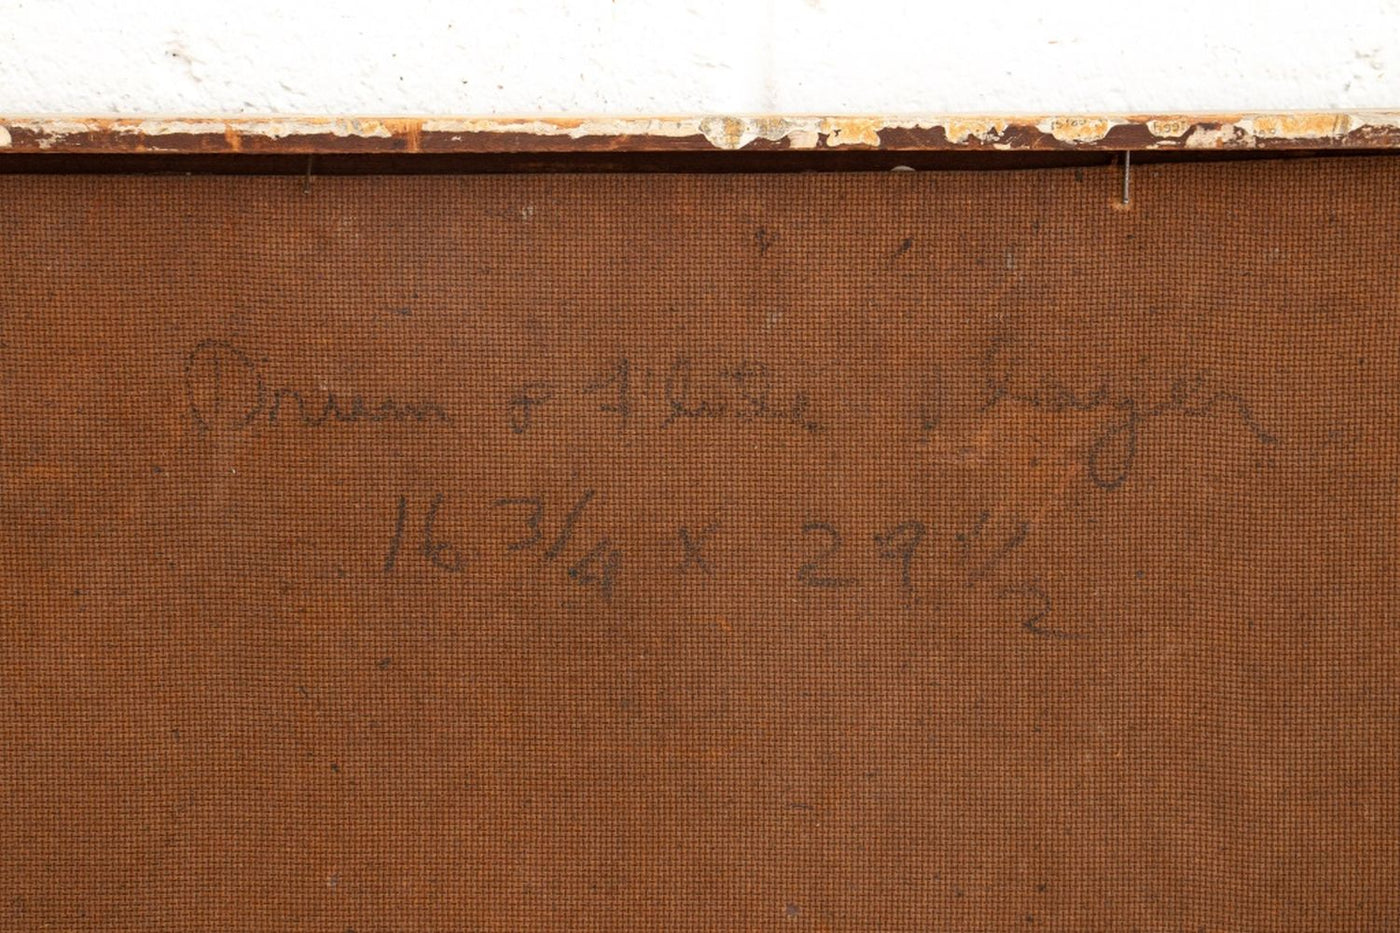 Dream o Flute Player
16 3/4 x 29 1/2